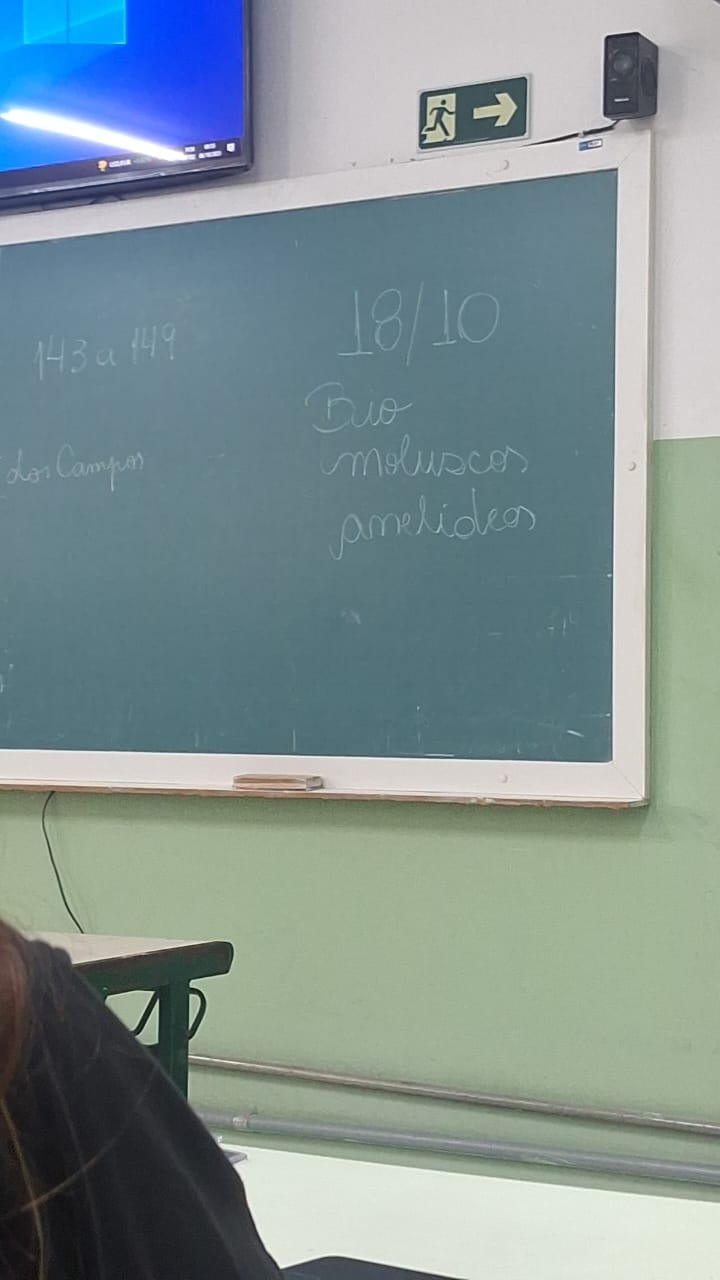 143 a 149
dos Campos
18/10
Bio
moluscos
anelideos